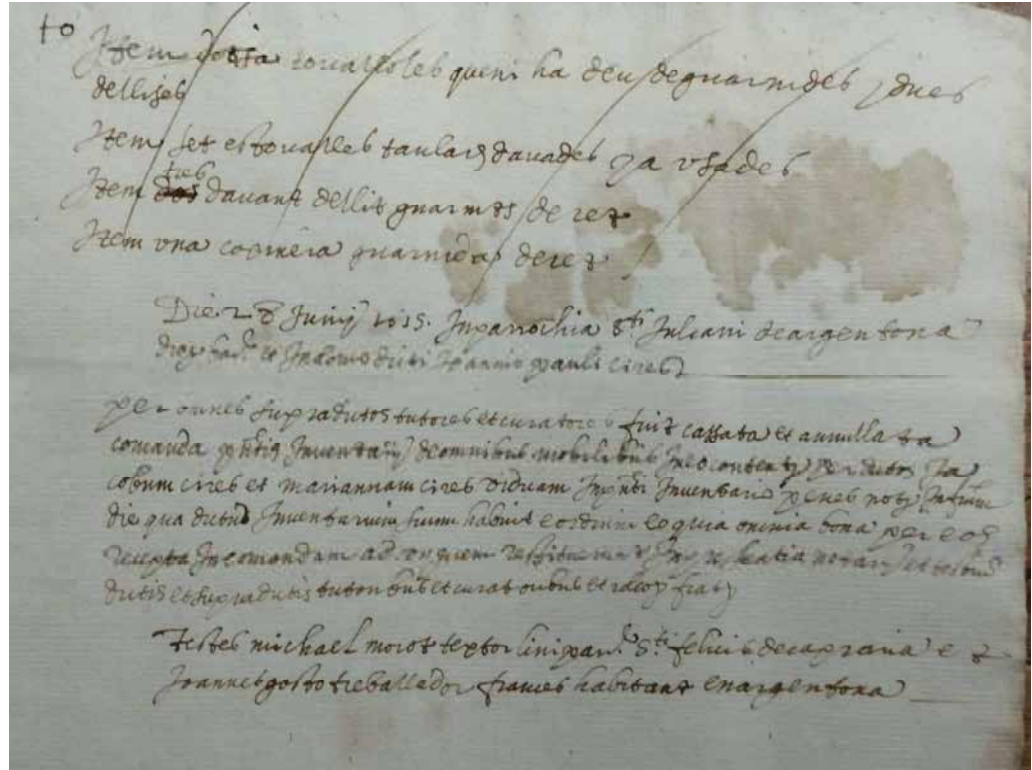 10
Item tovalloles queni ha deu deguarnides y dues
dellises
Item set estovalles taulars davades ja usades
tres
Item dos davant dellit guarnits de ret
Item una coxinera guarnida de ret
Die 2 Junij 1615. In parrochia Sti Juliani de argentona
et in domo dicti Joannis pauli cires
per omnes supradictos tutores et curatores fuit cassata et annullata
comanda pntis Inventarij de omnibus mobilibus In eo contentis per dictos Ja
cobum cires et mariannam cires viduam In pnti Inventario penes
die qua dictum Inventarium suum habuit eo quia omnia bona per eos
recepta In comandam ad unguem restituerunt In mei notarij et testium
dictis et supradictis tutoribus et curatoribus et fiat
Testes michael morot textor lini par. Sti felicis de capraria et
Joannes gosto treballador frances habitant en argentona